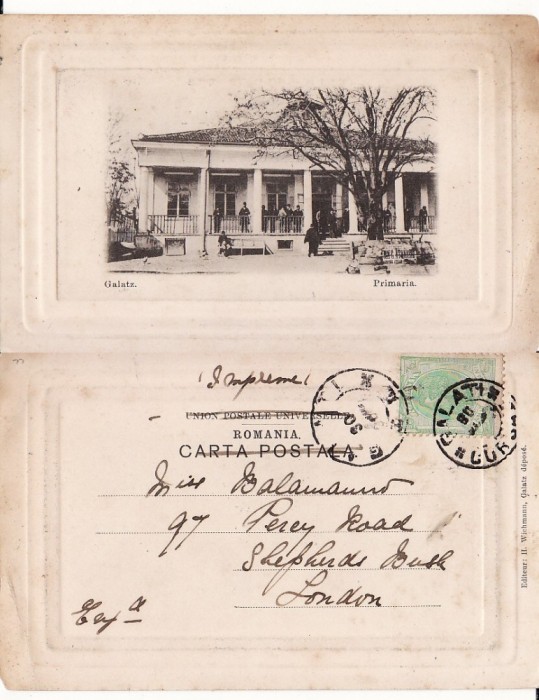 Galatz. Primaria.
(Imprimé)
UNION POSTALE UNIVERSELLE
ROMANIA.
CARTA POSTALA
GALATI
GALATI
CURSA
Miss Balamanno
97 Percy Road
Shepherds Bush
London
Editeur: H. Wichmann, Galatz déposé.